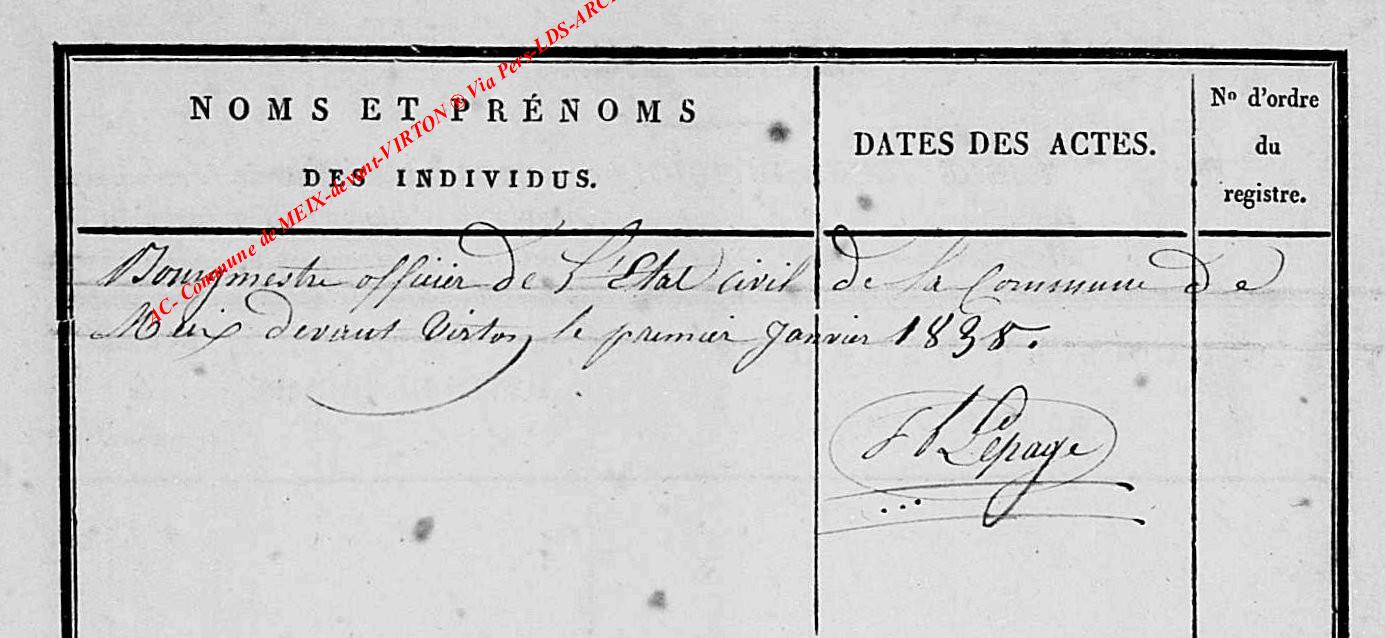 AC- Commune de MEIX-devant-VIRTON ® Via Pers-LDS-ARC
NOMS ET PRÉNOMS
DES INDIVIDUS.
DATES DES ACTES.
No d'ordre
du
registre.
Bourgmestre officier de l'Etat civil de la Commune de
Meix devant Virton, le premier Janvier 1838.
Lepage